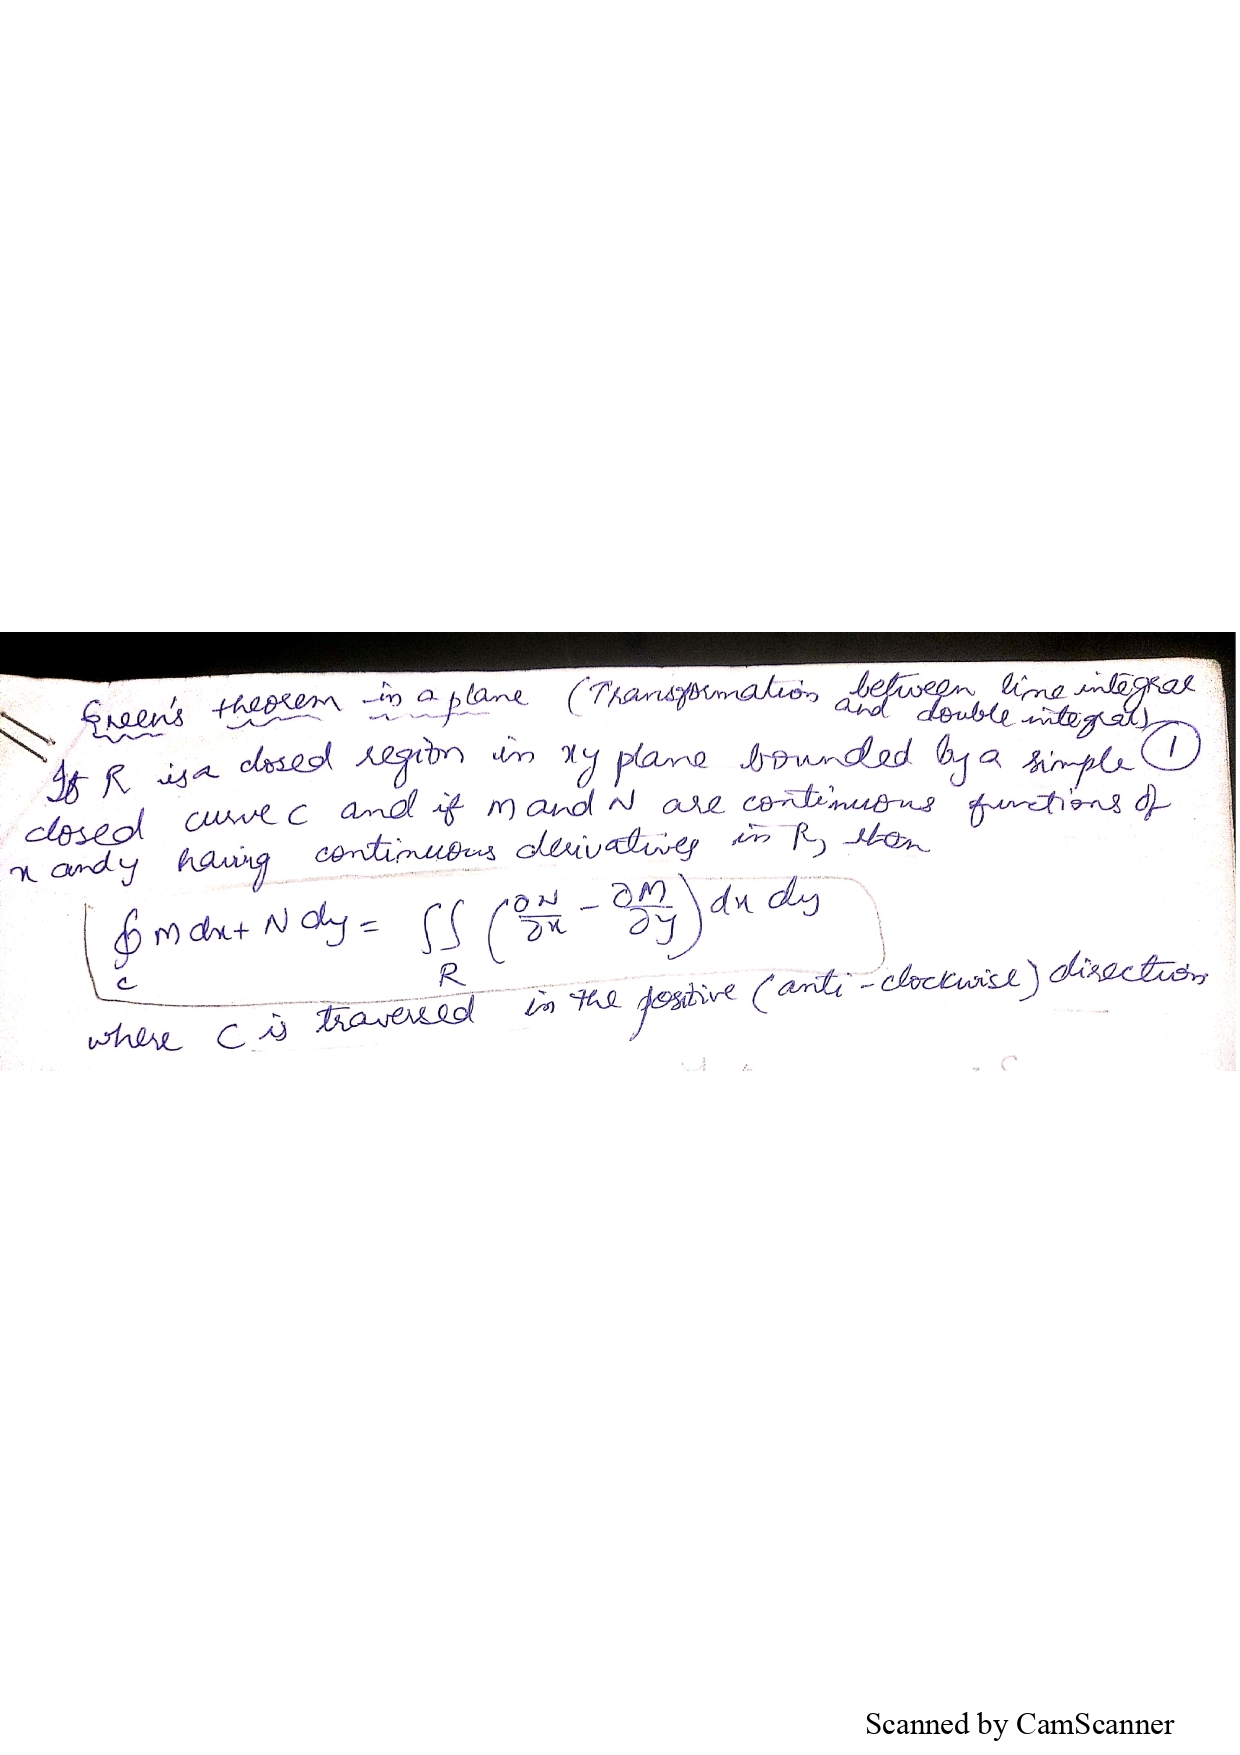 Green's theorem in a plane (Transformation between line integral
and double integral)
If R is a closed region in xy plane bounded by a simple ①
closed curve C and if M and N are continuous functions of
x and y having continuous derivatives in R, then
∮ M dx + N dy = ∬ (∂N/∂x − ∂M/∂y) dx dy
C R
where C is traversed in the positive (anti-clockwise) direction
Scanned by CamScanner